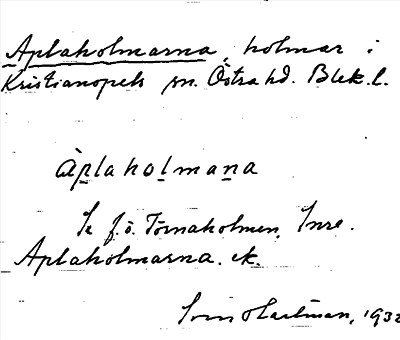 Aplaholmarna, holmar i
Kristianopels sn. Östra hd. Blek. l.
àplaholmana
Se f.ö. Törnaholmen, Inre.
Aplaholmarna. ek.
Sven Hartman, 1932